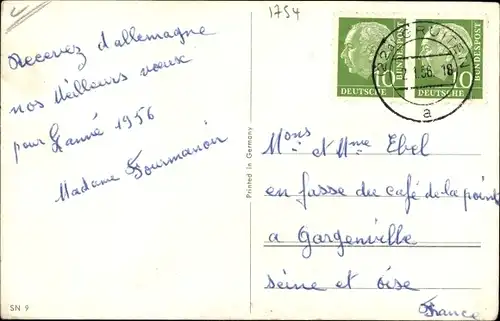 1754
Recevez d'allemagne
nos Meilleurs vœux
pour L'année 1956
Madame Fourmanoir
SN 9
Printed in Germany
10 DEUTSCHE BUNDESPOST
10 DEUTSCHE BUNDESPOST
GRUITEN
56. 18
a
Mons et Mme Ebel
en fasse du café de la pointe
a Gargenville
seine et oise
France